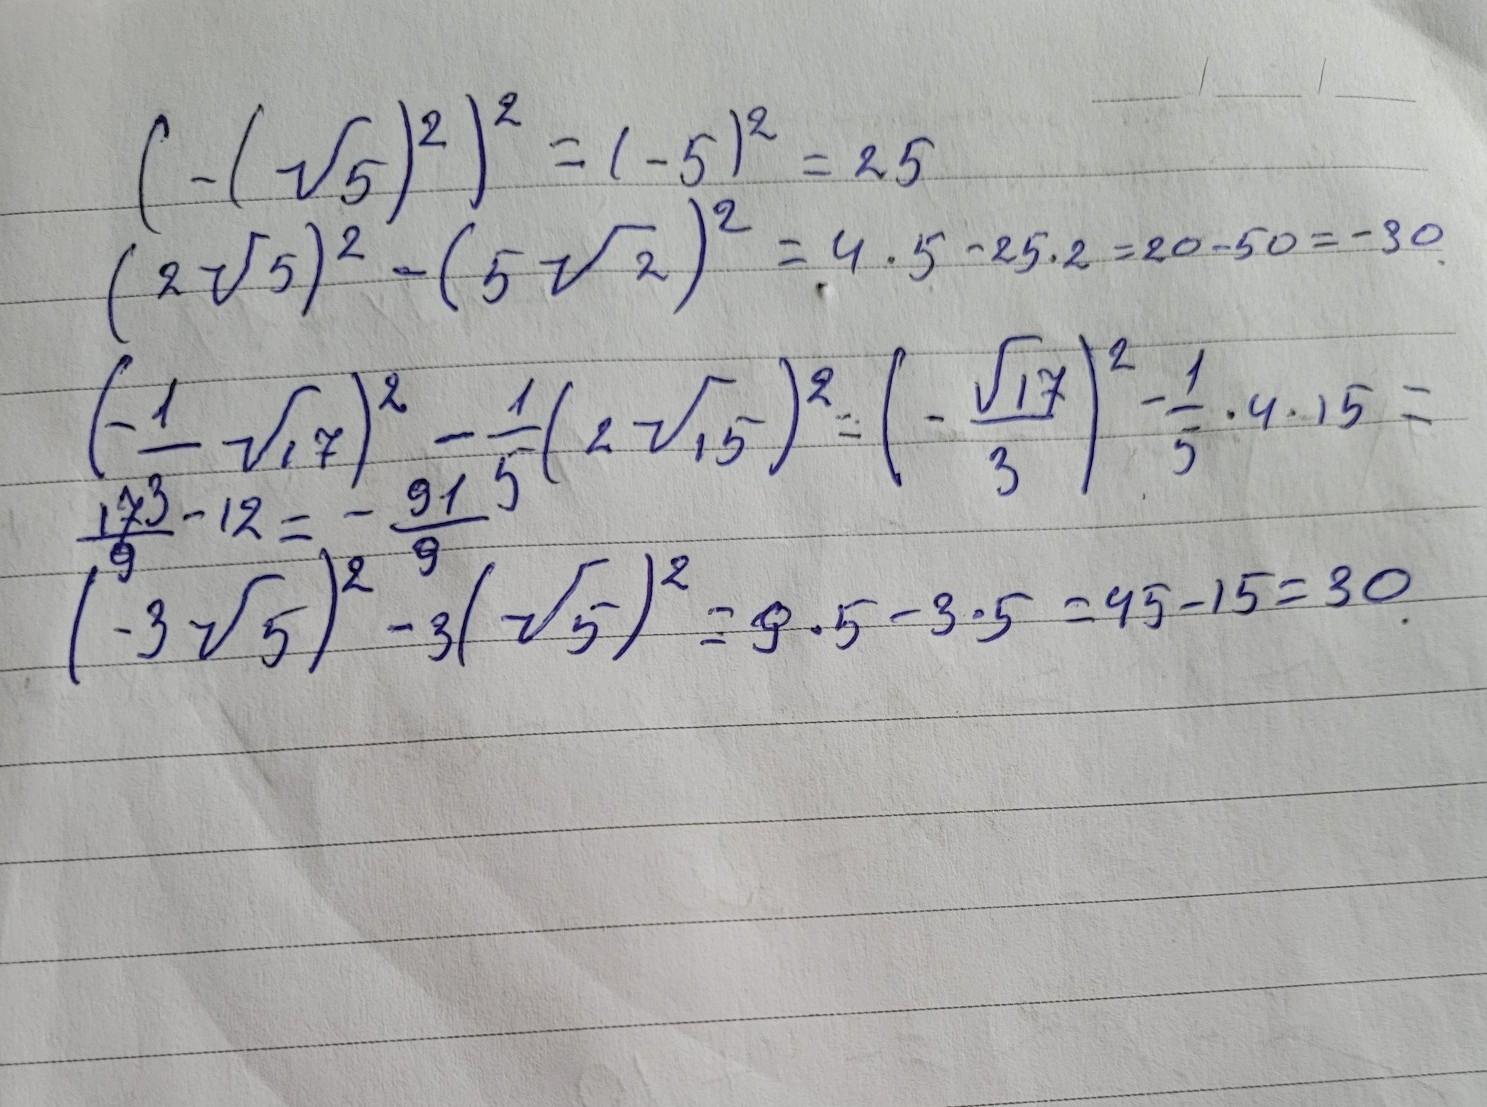 (-(√5)²)² = (-5)² = 25
(2√5)² - (5√2)² = 4·5 - 25·2 = 20 - 50 = -30.
(-1/3 √17)² - 1/5 (2√15)² = (-√17/3)² - 1/5 · 4 · 15 =
17/9 - 12 = - 91/9
(-3√5)² - 3(√5)² = 9·5 - 3·5 = 45 - 15 = 30.